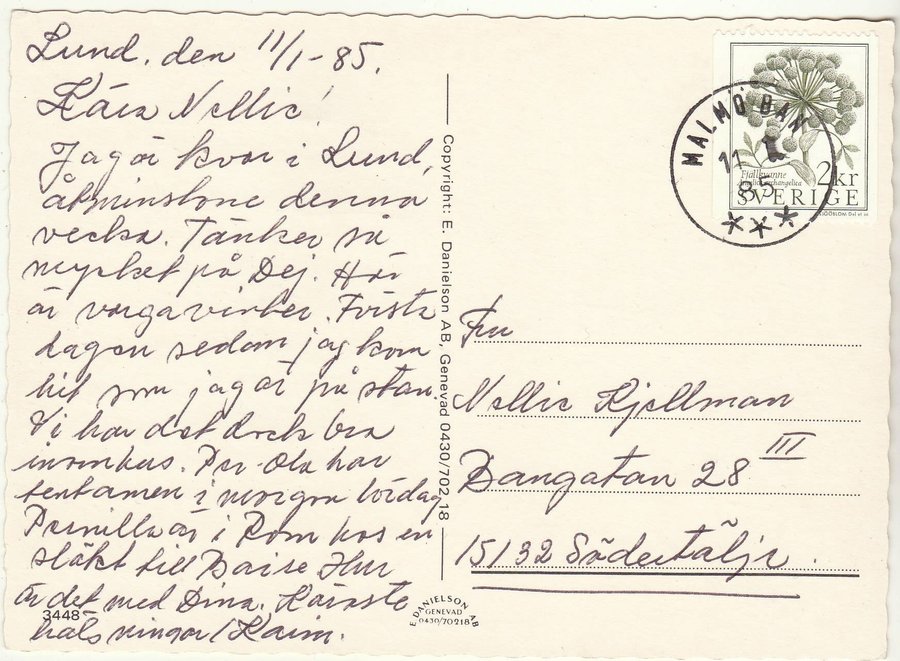 Lund. den 11/1-85.
Kära Nellie!
Jag är kvar i Lund,
åtminstone denna
vecka. Tänker så
mycket på Dej. Här
är vargavinter. Första
dagen sedan jag kom
hit som jag är på stan.
Vi har det dock bra
inomhus. Per-Ola har
tentamen i morgon lördag
Pernilla är i Rom hos en
släkt till Hur
är det med Dina. Käraste
hälsningar / Karin.
3448
Copyright: E. Danielson AB, Genevad 0430/702 18
E DANIELSON AB
GENEVAD
0430/70218
MALMÖ BAN
11 1
85
Fjällkvanne
Angelica archangelica
2kr
SVERIGE
Fru
Nellie Kjellman
Bangatan 28 III
15132 Södertälje.